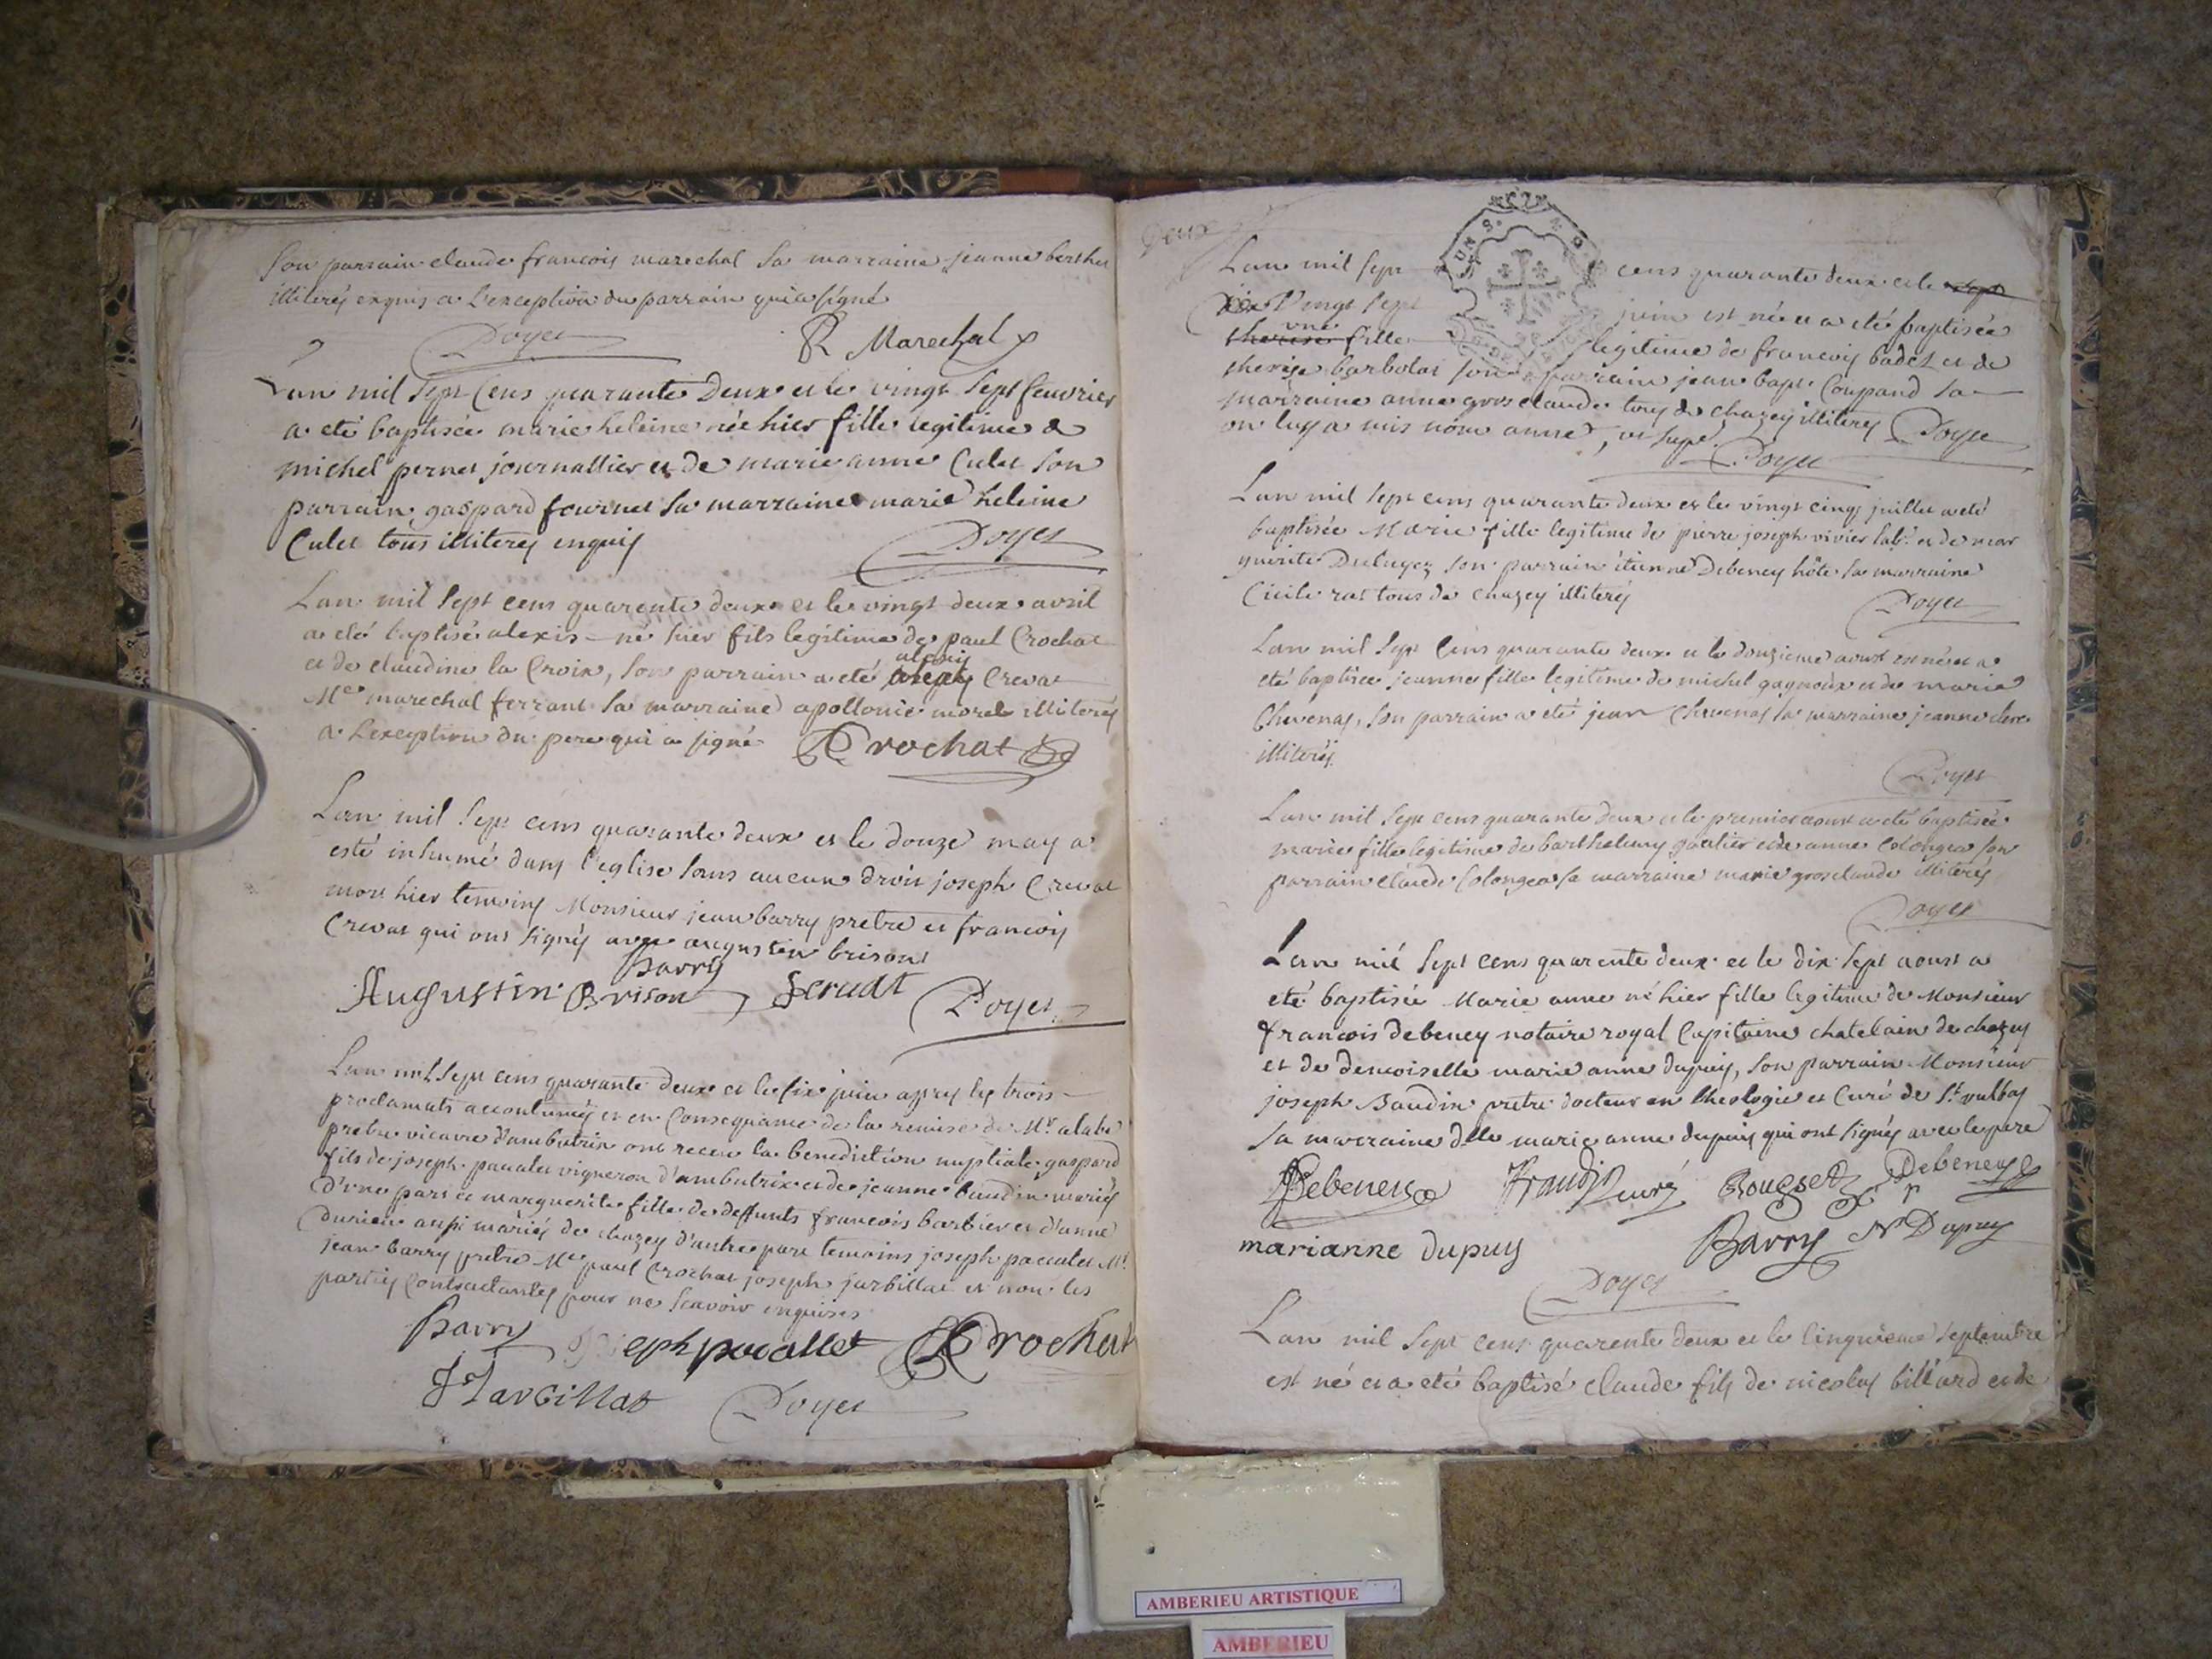 son parrain claude francois marechal sa marraine jeanne berthet
illiterés enquis a l'exception du parrain qui a signé
Doyet
Marechal
Lan mil sept cens quarante deux et le vingt sept feuvrier
a eté baptisée marie heleine née hier fille legitime de
michel pernet journallier et de marie anne Culet son
parrain gaspard fournet sa marraine marie heleine
Culet tous illiterés enquis
Doyet
Lan mil sept cens quarente deux et le vingt deux avril
a eté baptisé alexis né hier fils legitime de paul Crochat
et de claudine la Croix, son parrain a eté alexis Crevat
Me marechal ferrant sa marraine apollonie morel illiterés
a l'exception du pere qui a signé Crochat
Lan mil sept cens quarante deux et le douze may a
esté inhumé dans l'eglise sans aucun droit joseph Crevat
mort hier temoins Monsieur jean barry pretre et francois
Crevat qui ont signés avec augustin brison
Barry
Augustin Brison
Doyet
Lan mil sept cens quarante deux et le six juin apres les trois
proclamats accoutumés et en Consequance de la remise de Mr
pretre vicaire d'ambutrix ont receu la benediction nuptiale gaspard
fils de joseph pacalet vigneron d'ambutrix et de jeanne baudin mariés
d'une part et marguerite fille de deffunts francois barbier et d'anne
durieu aussi mariés de chazey d'autre part temoins joseph pacalet Mr
jean barry pretre Me paul Crochat joseph jarbillat et non les
parties Contractantes pour ne scavoir enquises
Barry Joseph pacallet Crochat
Doyet
Deux
Lan mil sept cens quarante deux et le
vingt sept juin est née et a eté baptisée
une fille legitime de francois badet et de
therese barbolat son parrain jean bapt. Coupand sa
marraine anne grosclaude tous de chazey illiterés Doyet
on luy a mis nom anne, ut supr.
Doyet
Lan mil sept cens quarante deux et le vingt cinq juillet a eté
baptisée Marie fille legitime de pierre joseph vivier labr. et de mar
guerite son parrain étienne Debeney hôte sa marraine
Cicile rat tous de chazey illiterés
Doyet
Lan mil sept cens quarante deux et le douzieme aoust est née et a
eté baptisée jeanne fille legitime de michel gagneux et de marie
Chevenas, son parrain a eté jean Chevenas sa marraine jeanne clerc
illiterés
Doyet
Lan mil sept cens quarante deux et le premier aoust a eté baptisée
marie fille legitime de barthelemy goutier et de anne Colongea son
parrain claude Colongea sa marraine marie grosclaude illiterés
Doyet
Lan mil sept cens quarente deux et le dix sept aoust a
eté baptisée Marie anne né hier fille legitime de Monsieur
francois debeney notaire royal Capitaine chatelain de chazey
et de demoiselle marie anne dupuy, son parrain Monsieur
joseph Baudin pretre docteur en theologie et Curé de St vulbas
sa marraine dlle marie anne dupuis qui ont signés avec le pere
Debeney Baudin curé Rougset Debeney
marianne dupuy Barry Dupuy
Doyet
Lan mil sept cens quarente deux et le Cinquieme septembre
est né et a eté baptisé claude fils de nicolas billiard et de
AMBERIEU ARTISTIQUE
AMBERIEU